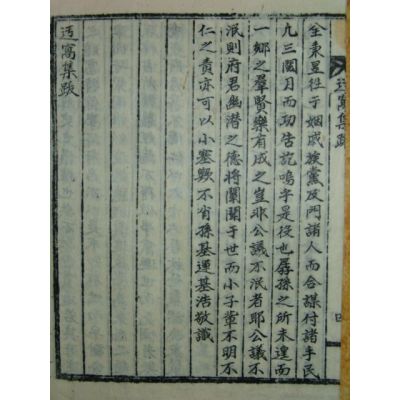 迃窩集跋
四
全秉昱往于姻戚族黨及門諸人而合謀付諸手民
九三個月而功告訖嗚乎是役也孱孫之所未遑而
一鄉之羣賢樂有成之豈非公議不泯者耶公議不
泯則府君幽潛之德將闡開于世而小子輩不明不
仁之責亦可以小塞歟不肖孫基運基浩敬識
迃窩集跋